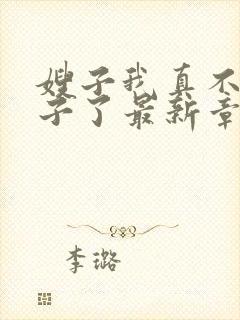 嫂子我真不
子了最新章
李璐